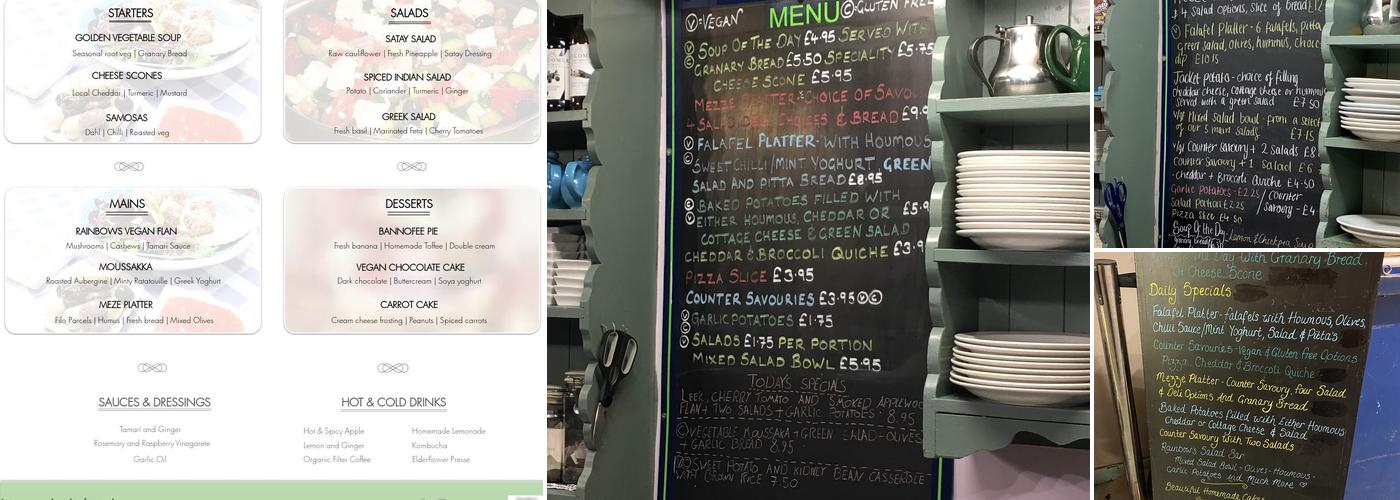 STARTERS
GOLDEN VEGETABLE SOUP
Seasonal root veg | Granary Bread
CHEESE SCONES
Local Cheddar | Turmeric | Mustard
SAMOSAS
Dahl | Chilli | Roasted veg
SALADS
SATAY SALAD
Raw cauliflower | Fresh Pineapple | Satay Dressing
SPICED INDIAN SALAD
Potato | Coriander | Turmeric | Ginger
GREEK SALAD
Fresh basil | Marinated Feta | Cherry Tomatoes
MAINS
RAINBOWS VEGAN FLAN
Mushrooms | Cashews | Tamari Sauce
MOUSSAKKA
Roasted Aubergine | Minty Ratatouille | Greek Yoghurt
MEZE PLATTER
Filo Parcels | Humus | Fresh bread | Mixed Olives
DESSERTS
BANNOFEE PIE
Fresh banana | Homemade Toffee | Double cream
VEGAN CHOCOLATE CAKE
Dark chocolate | Buttercream | Soya yoghurt
CARROT CAKE
Cream cheese frosting | Peanuts | Spiced carrots
SAUCES & DRESSINGS
Tamari and Ginger
Rosemary and Raspberry Vinegarete
Garlic Oil
HOT & COLD DRINKS
Hot & Spicy Apple
Lemon and Ginger
Organic Filter Coffee
Homemade Lemonade
Kombucha
Elderflower Presse
Ⓥ=VEGAN MENU Ⓖ=GLUTEN FREE
Ⓥ SOUP OF THE DAY £4.95 SERVED WITH
Ⓖ GRANARY BREAD £5.50 SPECIALITY £5.75
CHEESE SCONE £5.95
MEZZE PLATTER-CHOICE OF SAVO
4 SALADS DELI CHOICES & BREAD £9.9
Ⓥ FALAFEL PLATTER- WITH HOUMOUS
Ⓖ SWEET CHILLI/MINT YOGHURT, GREEN
SALAD AND PITTA BREAD £8.95
Ⓖ BAKED POTATOES FILLED WITH
Ⓥ EITHER HOUMOUS, CHEDDAR OR £5.9
COTTAGE CHEESE & GREEN SALAD
CHEDDAR & BROCCOLI QUICHE £3.9
PIZZA SLICE £3.95
COUNTER SAVOURIES £3.95 Ⓥ Ⓖ
Ⓥ Ⓖ GARLIC POTATOES £1.75
Ⓥ Ⓖ SALADS £1.75 PER PORTION
MIXED SALAD BOWL £5.95
TODAYS SPECIALS
LEEK, CHERRY TOMATO AND SMOKED APPLEWOO
FLAN + TWO SALADS + GARLIC POTATOES 8.95
Ⓖ VEGETABLE MOUSSAKA + GREEN SALAD + OLIVES
+ GARLIC BREAD 8.95
SWEET POTATO AND KIDNEY BEAN CASSEROLE
WITH BROWN RICE 7.50
4 salad options, slice of bread £12
Ⓥ Falafel Platter - 6 falafels, pitta
green salad, olives, hummus, choic
dip £10.15
Jacket potato - choice of filling
cheddar cheese, cottage cheese or hummus
served with a green salad £7.50
v/gf Mixed salad bowl - from a select
of our 5 main salads £7.15
v/gf Counter savoury + 2 Salads £8
Counter savoury + 1 Salad £6
cheddar + Broccoli Quiche £4.50
Garlic potatoes - £2.25 / Counter
Salad portion £2.25 / Savoury - £4
Pizza Slice £4.50
Soup of the Day - Lemon & Chickpea Soup
The Day With Granary Bread
Or Cheese Scone
Daily Specials
Falafel Platter- falafels with Houmous, Olives,
Chilli Sauce/Mint Yoghurt, Salad & Pitta's
Counter Savouries- Vegan & Gluten Free Options
Pizza. Cheddar & Broccoli Quiche
Mezze Platter - Counter Savoury, Four Salad
& Deli Options And Granary Bread
Baked Potatoes filled with Either Houmous
Cheddar or Cottage Cheese & Salad
Counter Savoury With Two Salad's
Rainbows Salad Bar
Mixed Salad Bowl - Olives - Houmous -
Garlic Potatoes And Much More
Beautiful Homemade Cakes